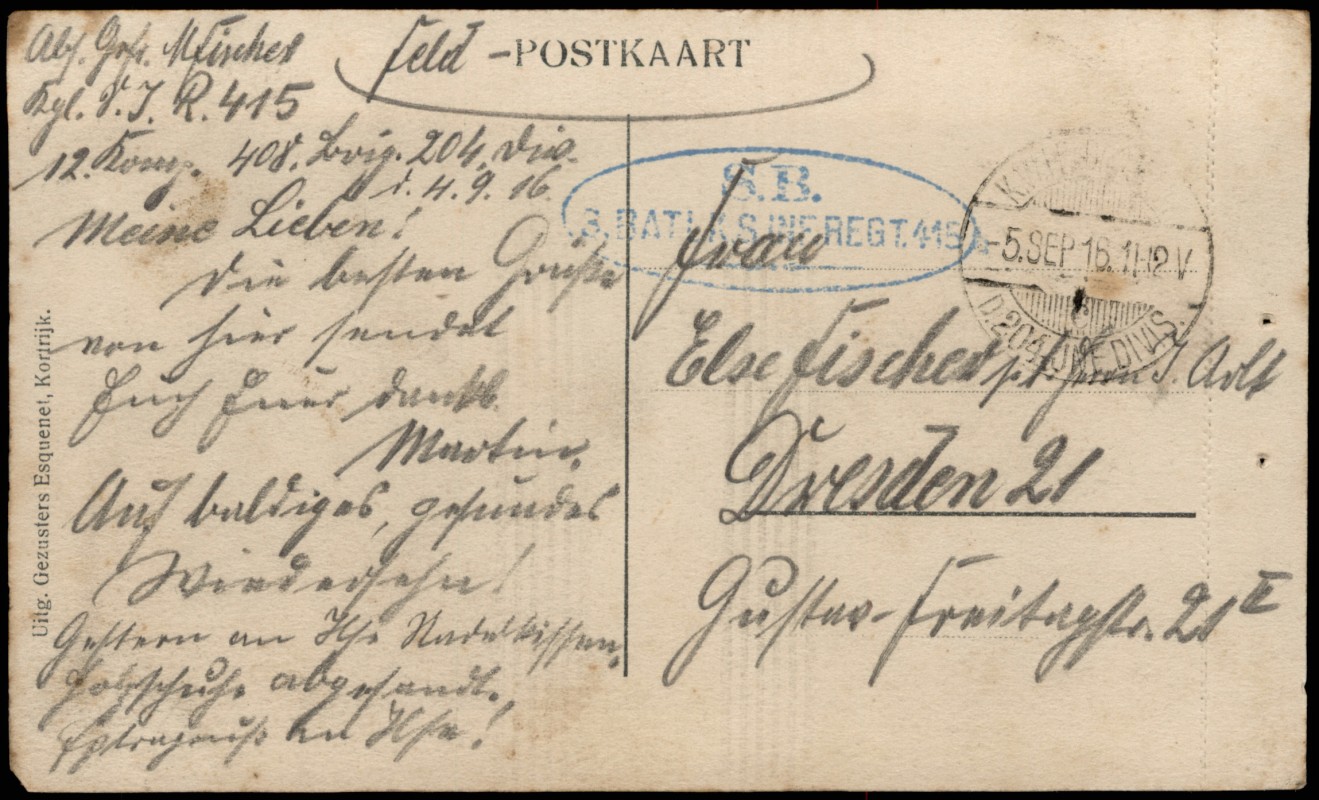 Abs. Gefr. M Fischer
Kgl. S. I. R. 415
12. Komp. 408. Brig. 204. Div.
d. 4.9.16.
Meine Lieben!
Die besten Grüße
von hier sendet
Euch Euer dankb.
Martin.
Auf baldiges, gesundes
Wiedersehn!
Gestern an Ilse Nadelkissen,
Holzschuhe abgesandt.
Extragruß an Ilse!
Uitg. Gezusters Esquenet, Kortrijk.
Feld-POSTKAART
S.B.
3. BATL. K.S. INF. REGT. 415
5.SEP.16.11-12 V
c
D. 204. INF. DIVIS.
Frau
Else Fischer Arlt
Dresden 21
Gustav-Freitagstr. 21 II